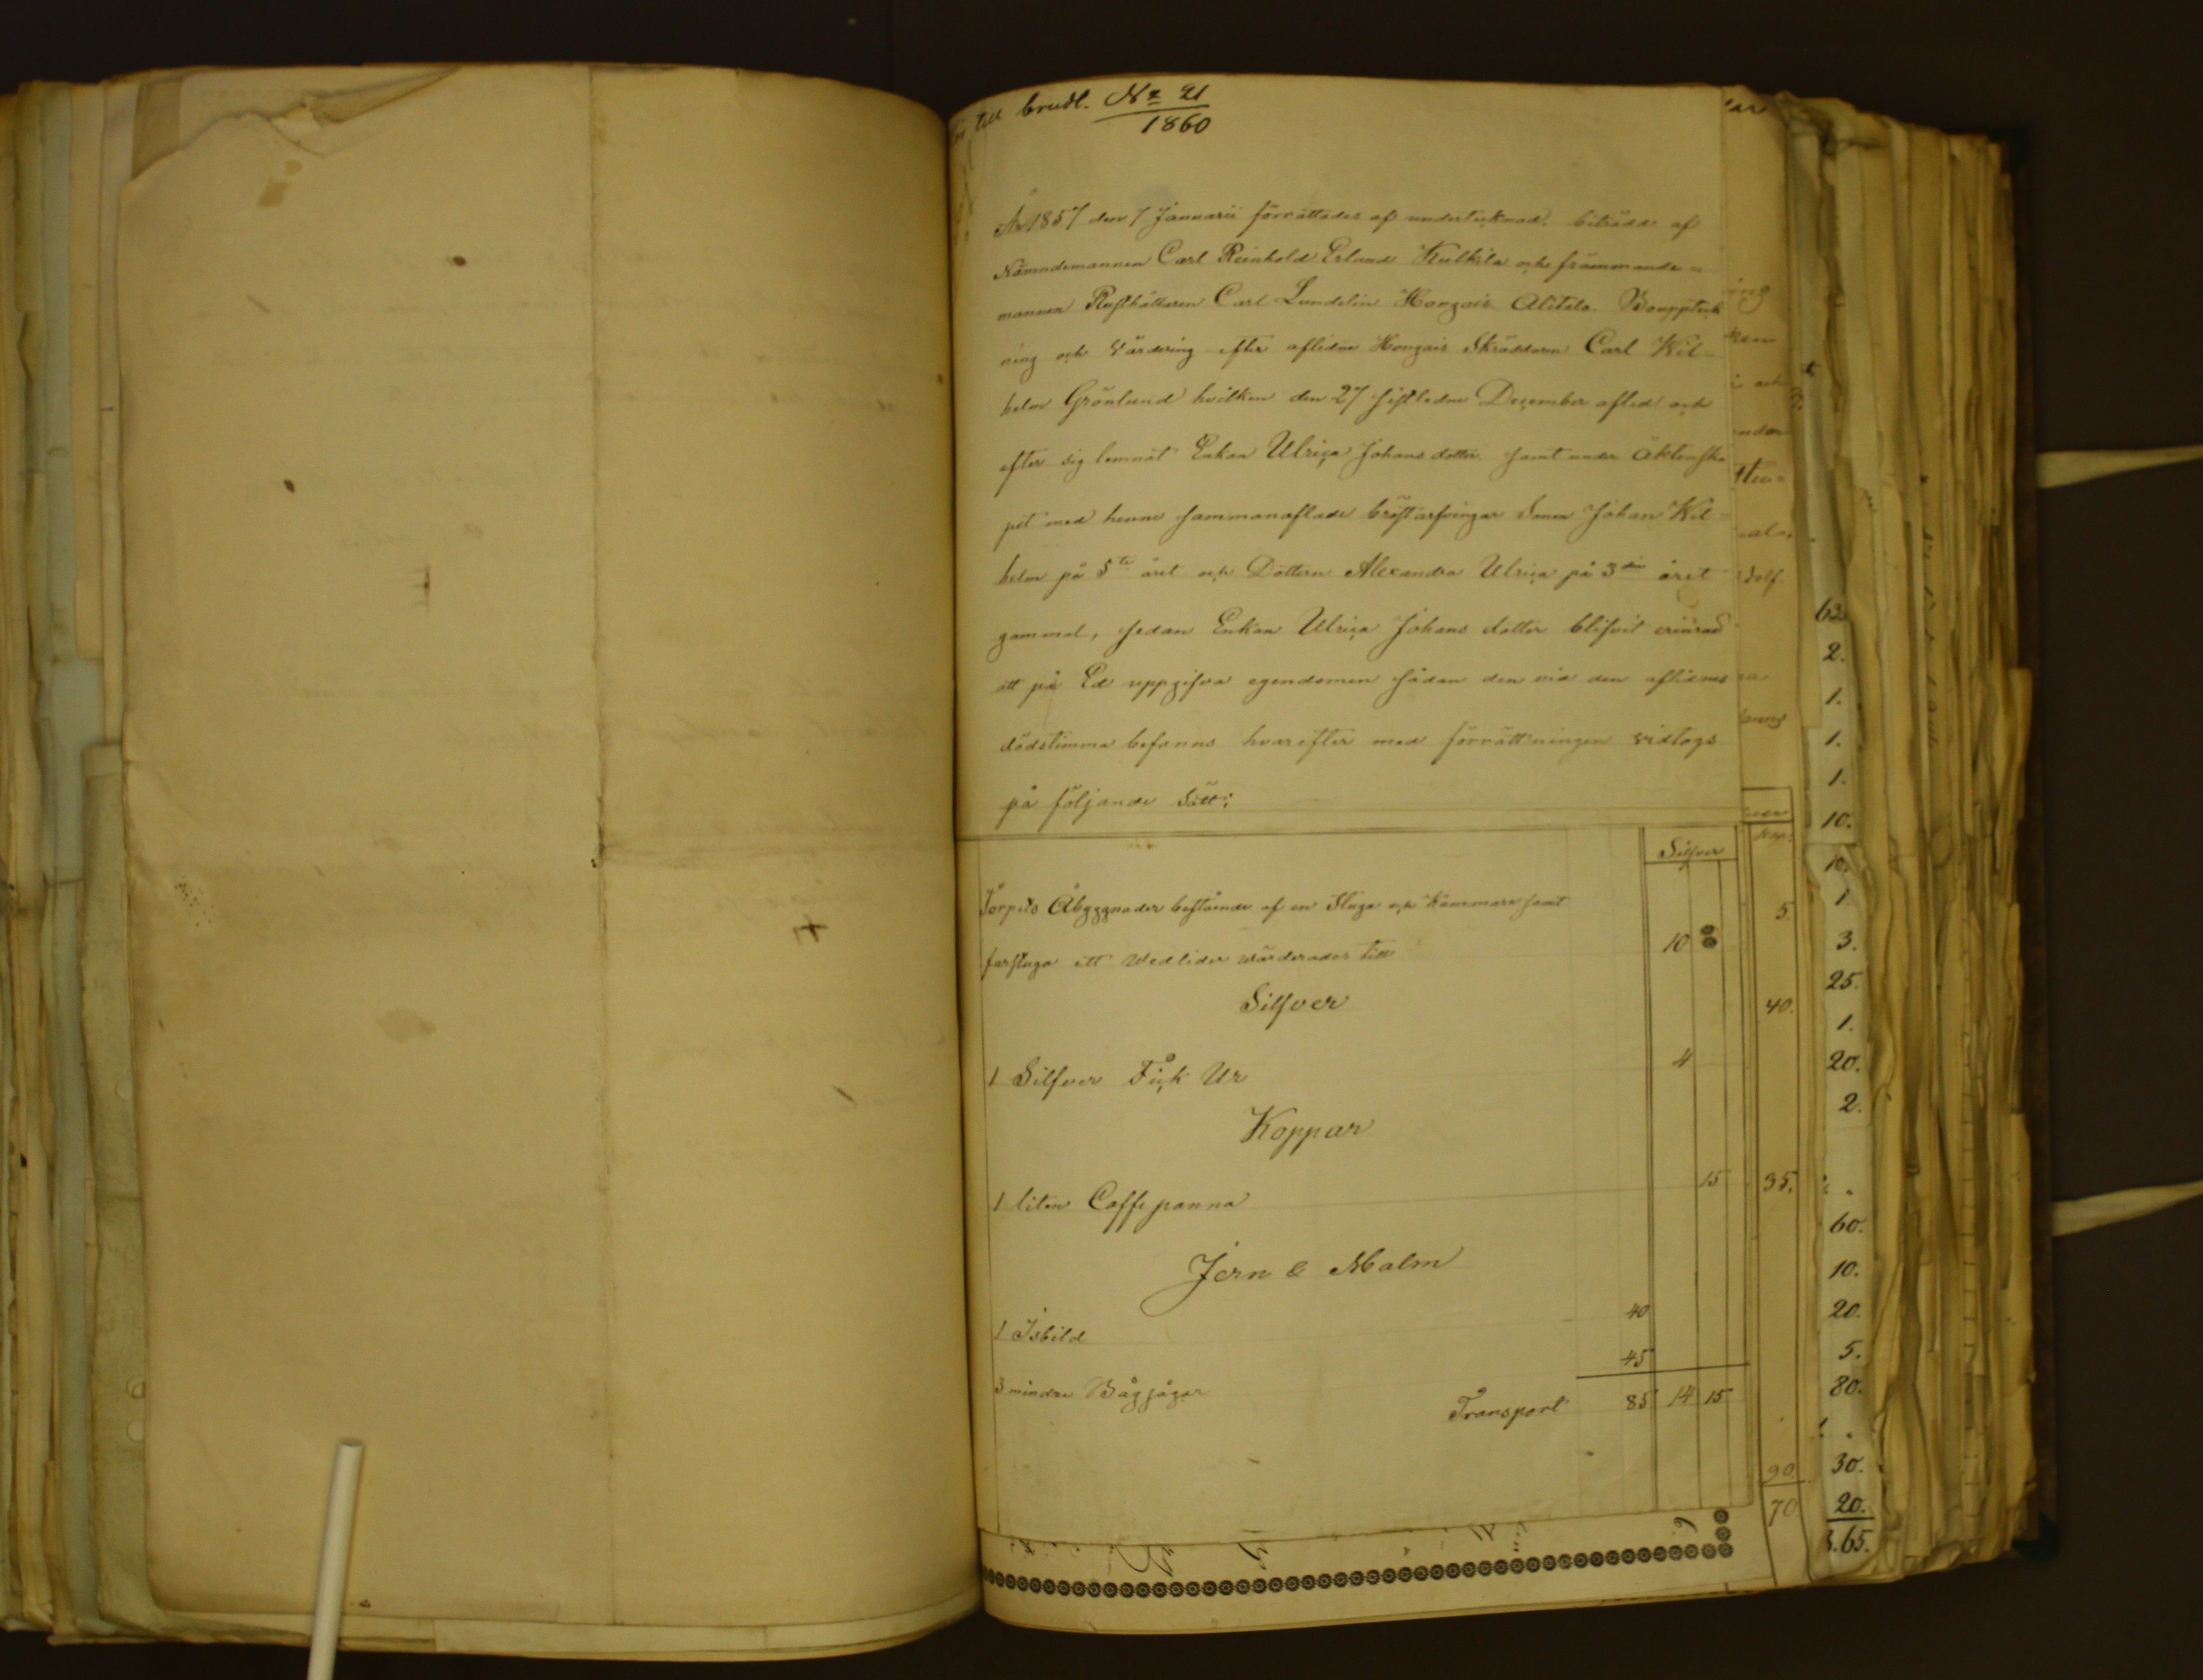 till brudl. No 21
1860
År 1857 den 7 Januarii förrättades af undertecknad, biträdd af
Nämndemannen Carl Reinhold Erland Kulkila och främmande=
mannen Rusthållaren Carl Lundelin Hongais Alitalo Bouppteck
ning och värdering efter aflidne Hongais Skräddaren Carl Wil-
helm Grönlund hvilken den 27 sistledne December afled och
efter sig lemnat Enkan Ulrica Johans dotter samt under äktenska
pet med henne sammanaflade bröstarfvingar Sonen Johan Wil=
helm på 5te året och Dottern Alexandra Ulrica på 3die året
gammal, sedan Enkan Ulrica Johans dotter blifvit erinrad
att på Ed uppgifva egendomen sådan den vid den aflidnes
dödstimma befanns hvarefter med förrättningen vidtogs
på följande sätt:
Silfver
Torpets Åbyggnader bestående af en Stuga och kammare samt
farstuga ett Wedlider wärderades till 10
Silfver
1 Silfver Fick Ur 4
Koppar
1 liten Caffepanna 15
Jern & Malm
1 Isbild 40
3 mindre Bågsågar 45
Transport 85 14 15
5.
40.
35.
90
70
2.
1.
1.
1.
10.
10.
1.
3.
25.
1.
20.
2.
60.
10.
20.
5.
80.
30.
20.
65.